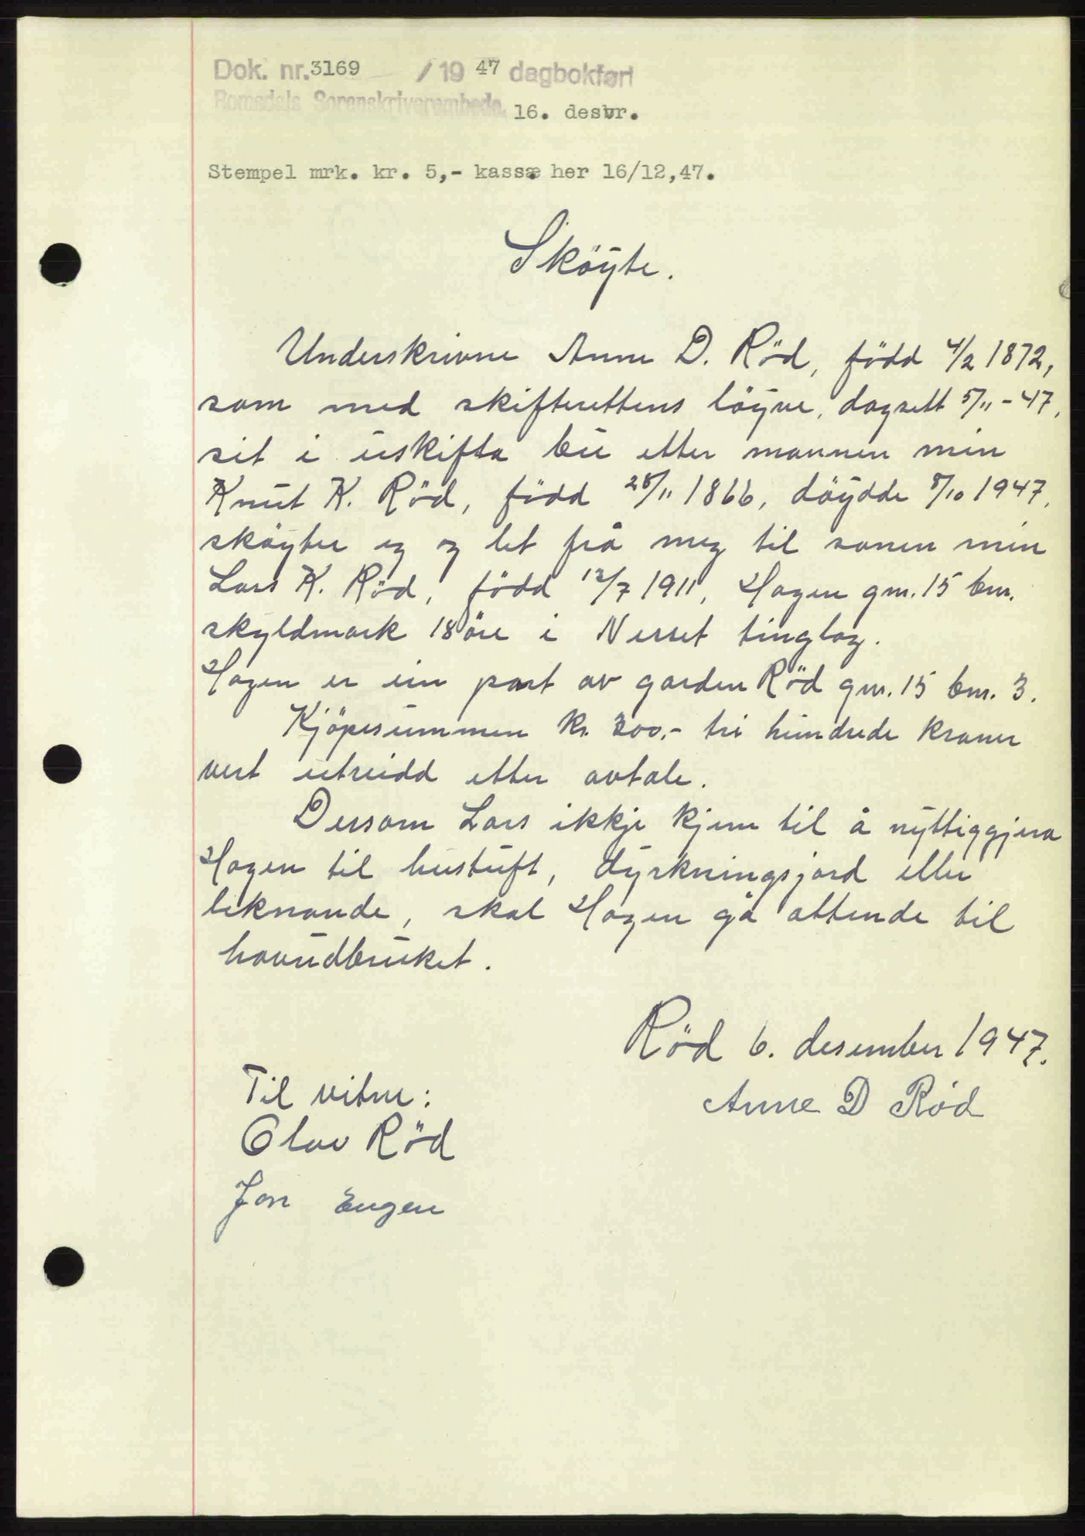 Dok. nr. 3169 / 19 47 dagbokført
Romsdals Sorenskriverembede. 16. desbr.
Stempel mrk. kr. 5,- kasse her 16/12,47.
Sköyte.
Underskrivne Anne D. Röd, född 4/2 1872,
som med skifterettens löyve, dagsett 5/11 - 47,
sit i uskifta bu etter mannen min
Knut K. Röd, född 28/11 1866, döydde 8/10 1947,
sköyter eg og let frå meg til sonen min
Lars K. Röd, född 12/7 1911, Hagen gnr. 15 bnr.
skyldmark 18 öre i Nesset tinglag.
Hagen er ein part av garden Röd gnr. 15 bnr. 3.
Kjöpesummen kr. 300,- tri hundrede kroner
vert utreidd etter avtale.
Dersom Lars ikkje kjem til å nyttiggjera
Hagen til hustuft, dyrkningsjord eller
liknande, skal Hagen gå attende til
hovudbruket.
Röd 6. desember 1947.
Anne D Rød
Til vitne:
Olav Röd
Jon Eugen